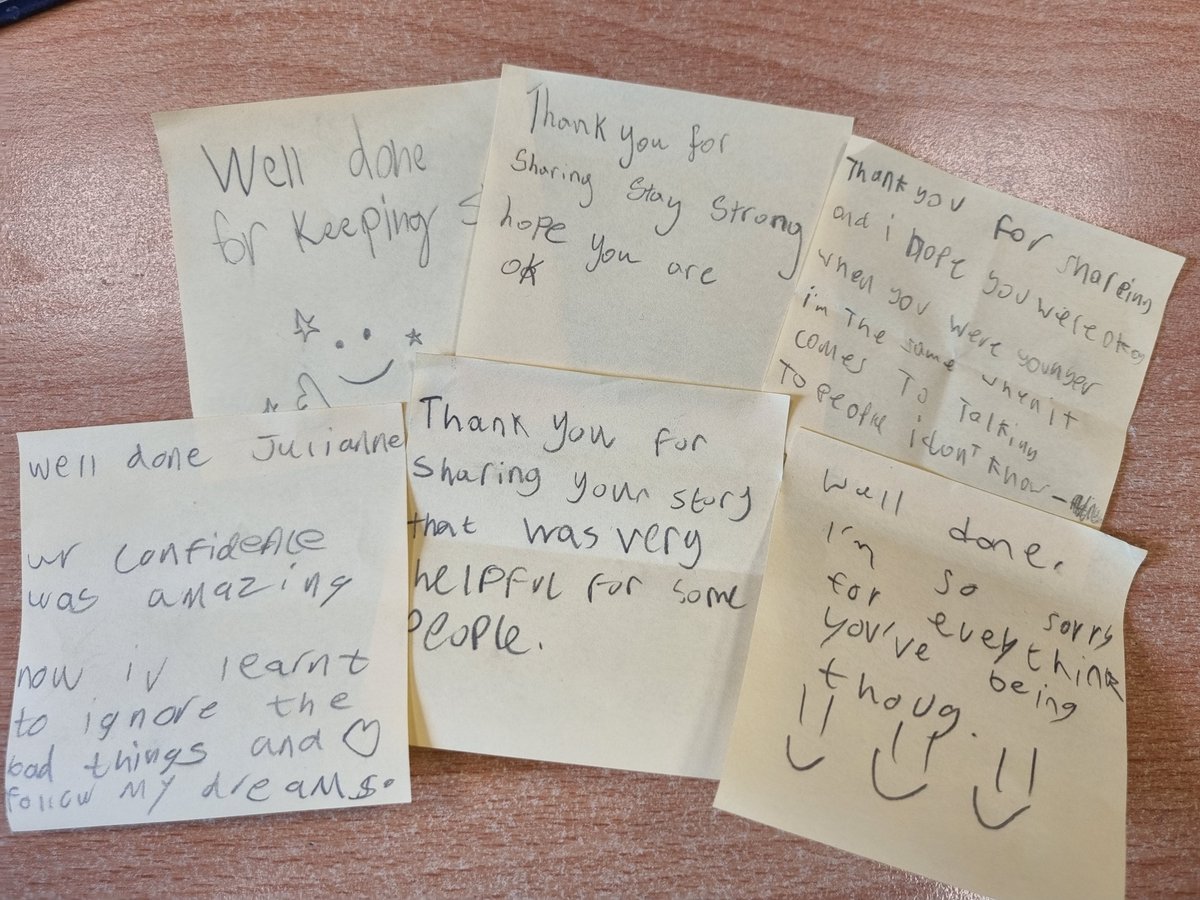 Well done
for keeping
Thank you for
Sharing Stay Strong
hope you are
ok
Thank you for shareing
and i hope you were okay
when you were younger
i'm the same when it
comes To Talking
To people i don't know -
well done Julianne
ur confidence
was amazing
now iv learnt
to ignore the
bad things and ♡
follow my dreams.
Thank you for
Sharing your story
that was very
helpful for some
people.
Well done.
I'm so sorry
for everythink
you've being
thoug.